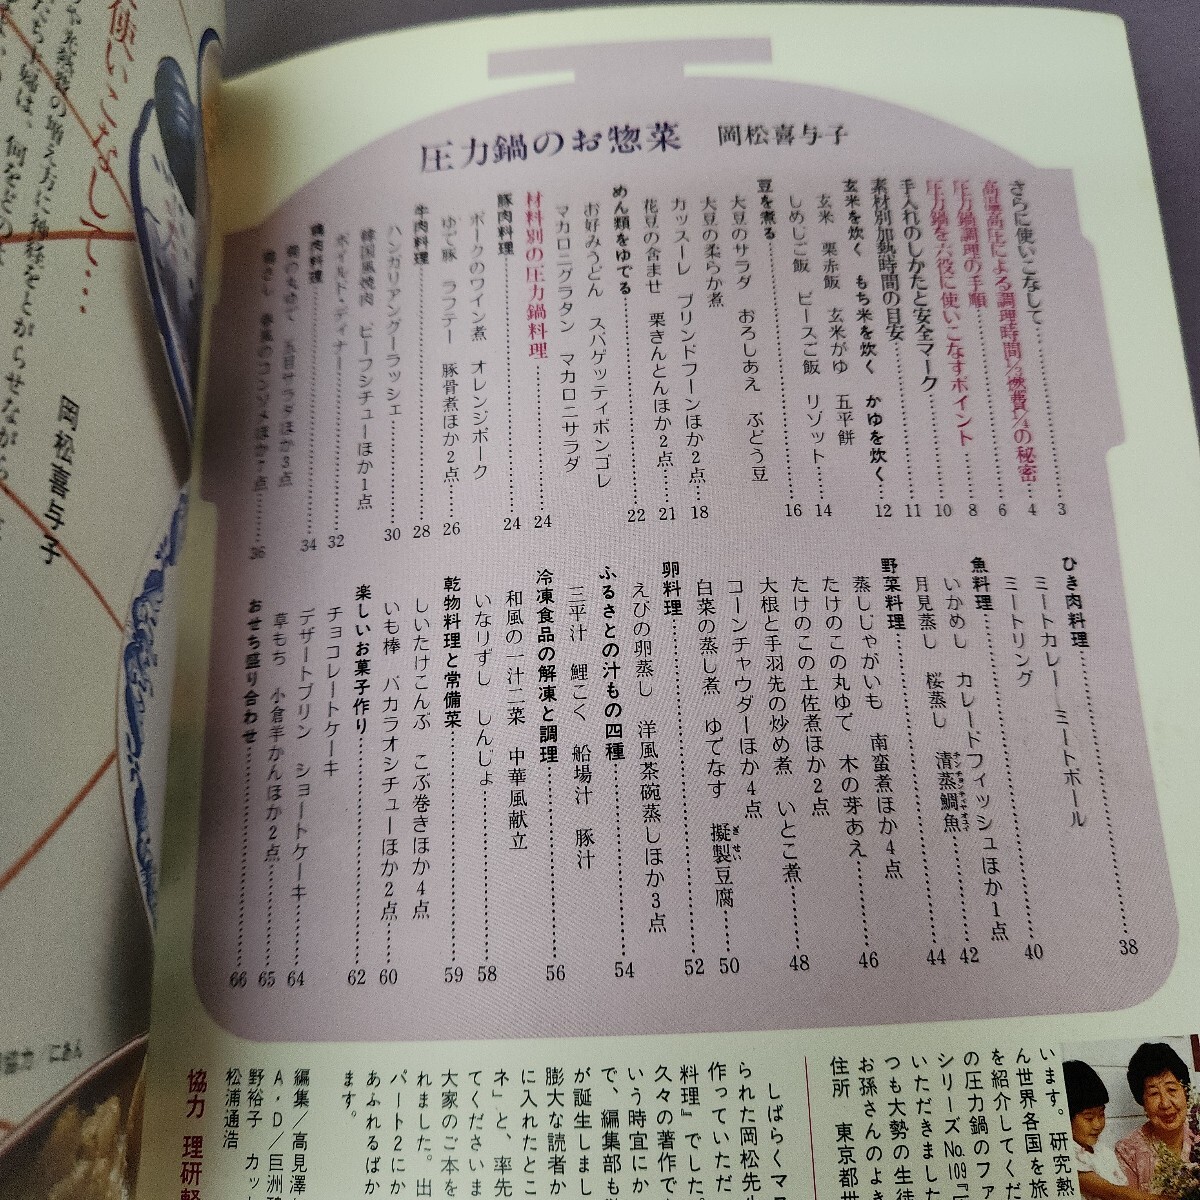 圧力鍋のお惣菜 岡松喜与子
さらに使いこなして……3
高温高圧による調理時間1/3燃費1/4の秘密……4
圧力鍋調理の手順……6
圧力鍋を六役に使いこなすポイント……8
手入れのしかたと安全マーク……10
素材別加熱時間の目安……11
玄米を炊く もち米を炊く かゆを炊く……12
玄米 栗赤飯 玄米がゆ 五平餅
しめじご飯 ピースご飯 リゾット……14
豆を煮る……16
大豆のサラダ おろしあえ ぶどう豆
大豆の柔らか煮
カッスーレ プリンドフーンほか2点……18
花豆の含ませ 栗きんとんほか2点……21
めん類をゆでる……22
お好みうどん スパゲッティボンゴレ
マカロニグラタン マカロニサラダ
材料別の圧力鍋料理……24
豚肉料理……24
ポークのワイン煮 オレンジポーク
ゆで豚 ラフテー 豚骨煮ほか2点……26
牛肉料理……28
ハンガリアングーラッシェ……30
韓国風焼肉 ビーフシチューほか1点
ボイルド・ディナー……32
鶏肉料理……34
五目サラダほか3点
36
ひき肉料理……38
ミートカレー ミートボール
ミートリング……40
魚料理……42
いかめし カレードフィッシュほか1点
月見蒸し 桜蒸し 清蒸鯛魚……44
野菜料理……46
蒸しじゃがいも 南蛮煮ほか4点
たけのこの丸ゆで 木の芽あえ
たけのこの土佐煮ほか2点
大根と手羽先の炒め煮 いとこ煮……48
コーンチャウダーほか4点
白菜の蒸し煮 ゆでなす 擬製豆腐……50
卵料理……52
えびの卵蒸し 洋風茶碗蒸しほか3点
ふるさとの汁もの四種……54
三平汁 鯉こく 船場汁 豚汁
冷凍食品の解凍と調理……56
和風の一汁二菜 中華風献立
いなりずし しんじょ……58
乾物料理と常備菜……59
しいたけこんぶ こぶ巻きほか4点
いも棒 バカラオシチューほか2点……60
楽しいお菓子作り……62
チョコレートケーキ
デザートプリン ショートケーキ……64
草もち 小倉羊かんほか2点……65
おせち盛り合わせ……66
使いこなして…
岡松喜与子
しばらくマ
られた岡松先生
作っていただ
料理』でした。
久々の著作で
いう時宜にか
で、編集部も
が誕生しまし
膨大な読者か
に入れたとこ
ネ」と、率先
てくださいま
大家のご本を
れました。出
パート2にか
あふれるばか
ます。
います。研究熱
ん世界各国を旅
を紹介してくだ
の圧力鍋のファ
シリーズNo.109『圧
いただきました
つも大勢の生徒
お孫さんのよき
住所 東京都世
編集／高見澤
A・D／巨洲
野裕子 カッ
松浦通浩
協力 理研軽